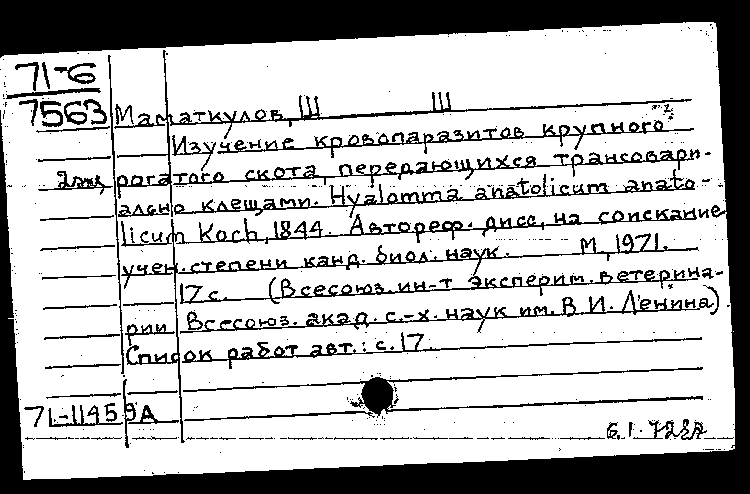 71-6
7563
Маматкулов, Ш Ш
Изучение кровопаразитов крупного
2экз, рогатого скота, передающихся трансовари-
ально клещами. Hyalomma anatolicum anato-
licum Koch, 1844. Автореф. дисс, на соискание
учен. степени канд. биол. наук. М, 1971.
17 с. (Всесоюз. ин-т эксперим. ветерина-
рии Всесоюз. акад. с.-х. наук им. В И. Ленина).
Список работ авт.: с. 17.
71-11459А
6.1.